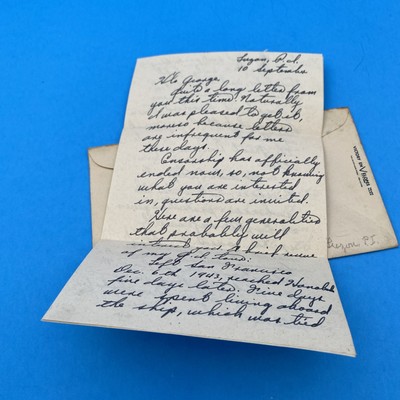 Luzon, P.I.
10 September
Hello George,
Quite a long letter from
you this time. Naturally
I was pleased to get it,
because letters
are infrequent for me
these days.
Censorship has officially
ended now, so, not knowing
what you are interested
in, questions are invited.
Here are a few generalities
that probably will
interest you. A brief
of my
Left San Francisco
Dec. 6th 1943, reached Honolulu
five days later. Nine days
were spent living aboard
the ship, which was tied
Luzon, P.I.